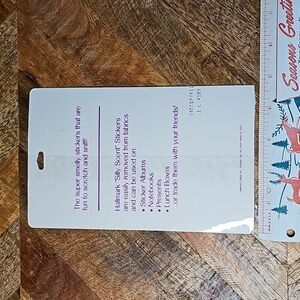 The super smelly stickers that are
fun to scratch and sniff!
Hallmark "Silly Scent" Stickers
are easily removed from fabrics
and can be used on
• Sticker Albums
• Notebooks
• Presents
• Lunch Boxes
or trade them with your friends!
Seasons Greetin